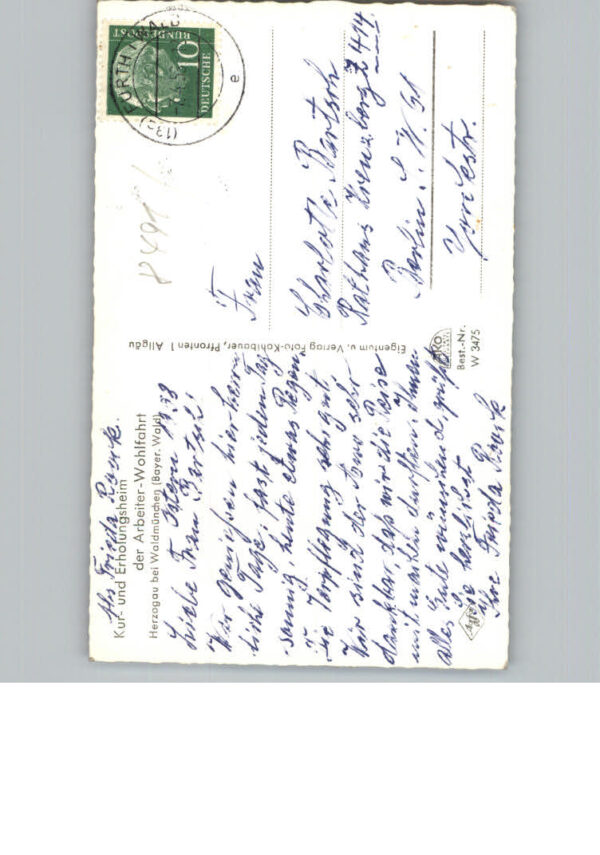 Abs. Frieda
Kur- und Erholungsheim
der Arbeiter-Wohlfahrt
Herzogau bei Waldmünchen (Bayer. Wald)
Ostern 1958
Liebe Frau Bartsch!
Wir genießen hier herr-
liche Tage, fast jeden Tag
sonnig, heute etwas Regen.
Die Verpflegung sehr gut
Wir sind der sehr
dankbar, das wir die Reise
mitmachen durften. Ihnen
alles Gute wünschend, grüßt
Sie herzlichst
Ihre Frieda
Agfa
Eigentum u. Verlag Foto-Kohlbauer, Pfronten 1 Allgäu
DEUTSCHE
BUNDESPOST
10
FURTH I WALD
(13
e
8491
Frau
Charlotte Bartsch
Rathaus Kreuzberg Z 414
Berlin S.W. 61
Yorckstr.
Best.-Nr.
W 3475